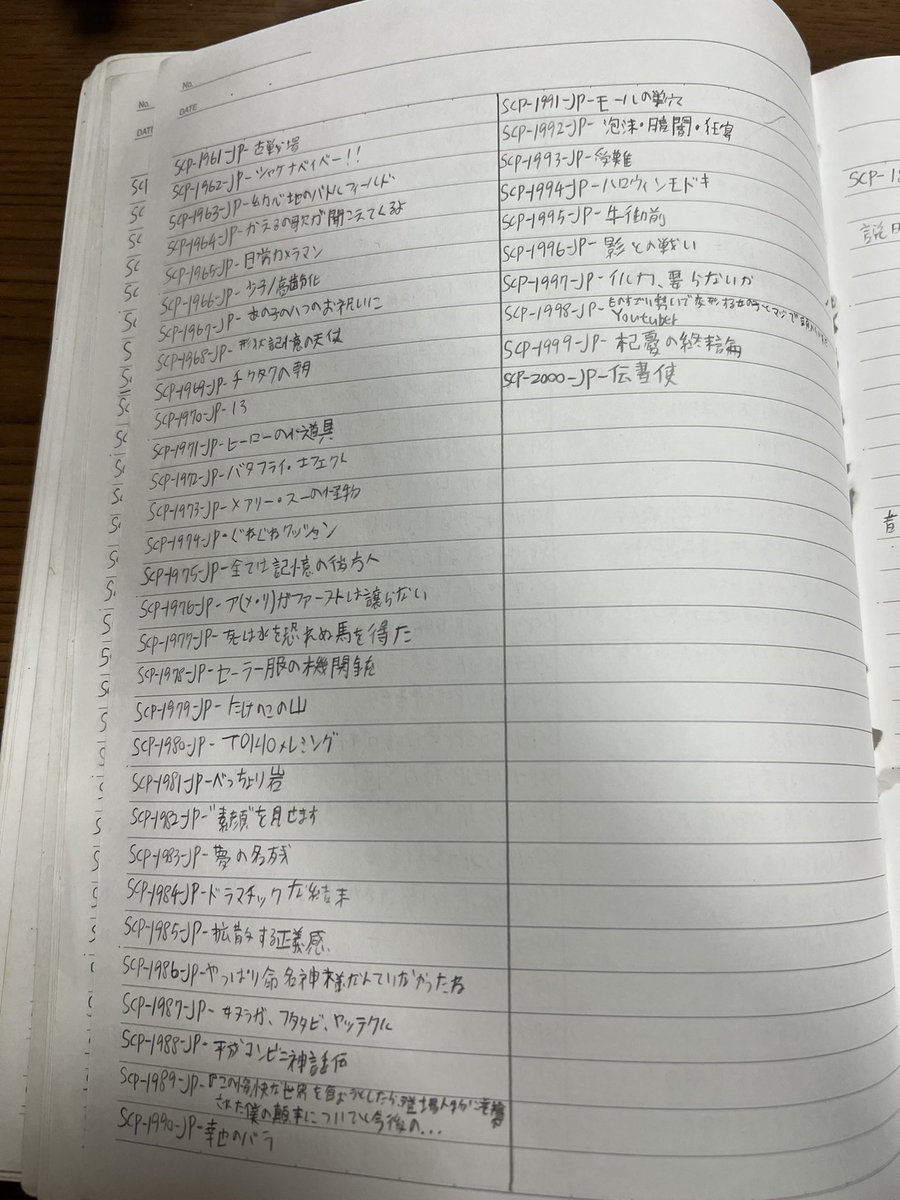 No.
DATE
SCP-1961-JP-古戦場
SCP-1962-JP-シャケナベイベー!!
SCP-1963-JP-幼心地のバトルフィールド
SCP-1964-JP-かえるの歌が聞こえてくるよ
SCP-1965-JP-日常カメラマン
SCP-1966-JP-少子/高齢化
SCP-1967-JP-あの子の八つのお祝いに
SCP-1968-JP-形状記憶の天使
SCP-1969-JP-チクタクの朝
SCP-1970-JP-13
SCP-1971-JP-ヒーローの小道具
SCP-1972-JP-バタフライ・エフェクト
SCP-1973-JP-メアリー・スーの怪物
SCP-1974-JP-ぐねぐねクッション
SCP-1975-JP-全ては記憶の彼方へ
SCP-1976-JP-ア(メ・リ)カファーストは譲らない
SCP-1977-JP-死は水を恐れぬ馬を得た
SCP-1978-JP-セーラー服の機関銃
SCP-1979-JP-たけのこの山
SCP-1980-JP-TOKIOメレミング
SCP-1981-JP-べっちょり岩
SCP-1982-JP-"素顔"を見せます
SCP-1983-JP-夢の名残
SCP-1984-JP-ドラマチックな結末
SCP-1985-JP-拡散する正義感
SCP-1986-JP-やっぱり命名神様なんていなかったね
SCP-1987-JP-サヌラガ、フタタビ、ヤッテクル
SCP-1988-JP-平成コンビニ神話
SCP-1989-JP-『この愉快な世界を
された僕の顛末についてと今後の...
SCP-1990-JP-幸也のバラ
SCP-1991-JP-モールの巣穴
SCP-1992-JP-泡沫・朧闇・狂宴
SCP-1993-JP-受難
SCP-1994-JP-ハロウィンモドキ
SCP-1995-JP-牛御前
SCP-1996-JP-影との戦い
SCP-1997-JP-イルカ、要らないか
SCP-1998-JP-ものすごい勢いで変形する
Youtuber
SCP-1999-JP-杞憂の終末論
SCP-2000-JP-伝書使
No.
DATE